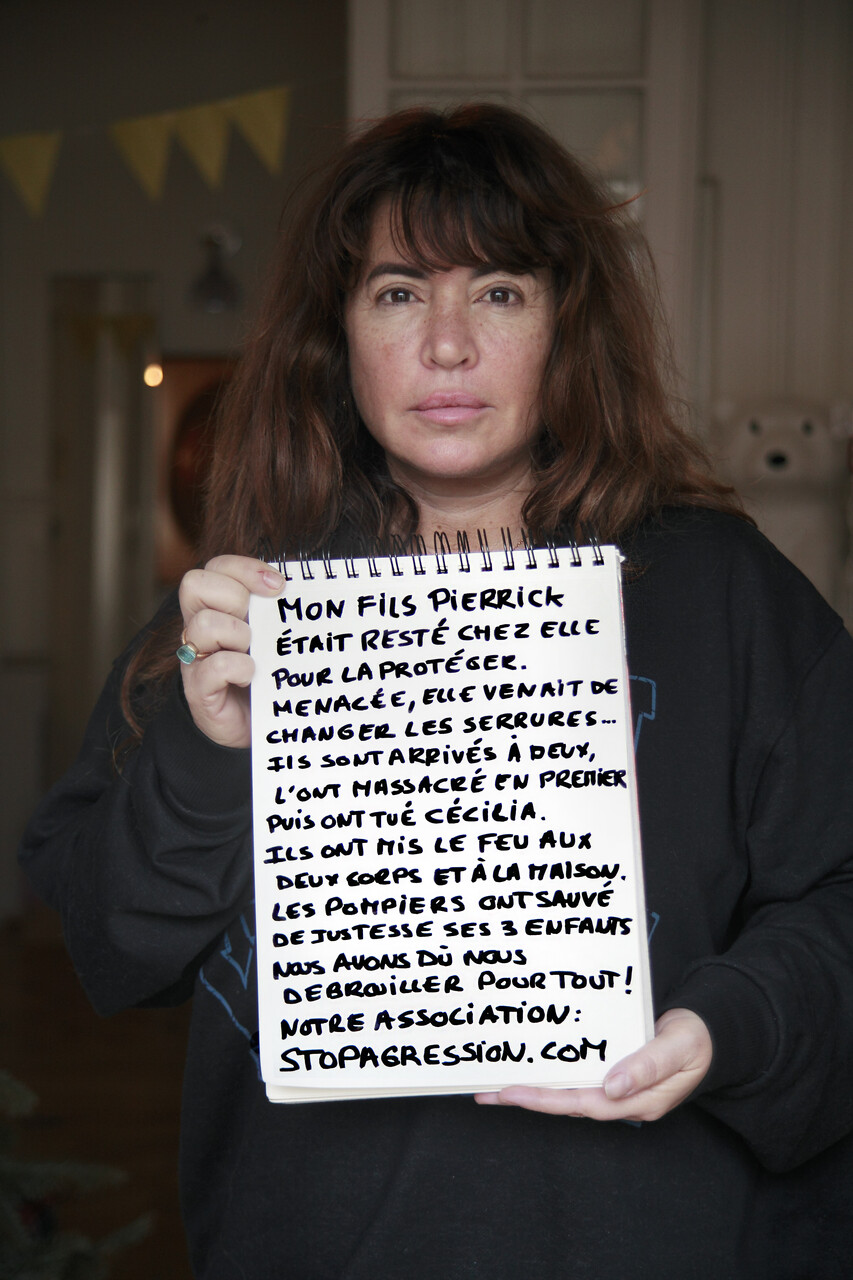 MON FILS PIERRICK
ÉTAIT RESTÉ CHEZ ELLE
POUR LA PROTÉGER.
MENACÉE, ELLE VENAIT DE
CHANGER LES SERRURES...
ILS SONT ARRIVÉS À DEUX,
L'ONT MASSACRÉ EN PREMIER
PUIS ONT TUÉ CÉCILIA.
ILS ONT MIS LE FEU AUX
DEUX CORPS ET À LA MAISON.
LES POMPIERS ONT SAUVÉ
DE JUSTESSE SES 3 ENFANTS
NOUS AVONS DÛ NOUS
DEBROUILLER POUR TOUT!
NOTRE ASSOCIATION:
STOPAGRESSION.COM